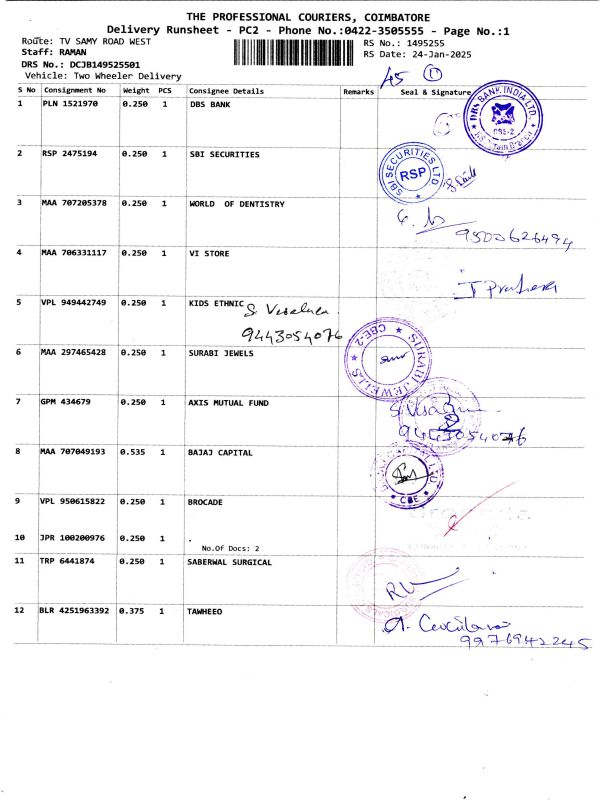 THE PROFESSIONAL COURIERS, COIMBATORE
Delivery Runsheet - PC2 - Phone No.:0422-3505555 - Page No.:1
Route: TV SAMY ROAD WEST RS No.: 1495255
Staff: RAMAN RS Date: 24-Jan-2025
DRS No.: DCJB149525501
Vehicle: Two Wheeler Delivery
45 1
S No Consignment No Weight PCS Consignee Details Remarks Seal & Signature
1 PLN 1521970 0.250 1 DBS BANK
DBS BANK INDIA LTD. CBE-2
2 RSP 2475194 0.250 1 SBI SECURITIES
SBI SECURITIES LTD RSP
3 MAA 707205378 0.250 1 WORLD OF DENTISTRY
9500626494
4 MAA 706331117 0.250 1 VI STORE
5 VPL 949442749 0.250 1 KIDS ETHNIC
9443054076
6 MAA 297465428 0.250 1 SURABI JEWELS
SURABI JEWELLS CBE-2
7 GPM 434679 0.250 1 AXIS MUTUAL FUND
9443054076
8 MAA 707049193 0.535 1 BAJAJ CAPITAL
CBE
9 VPL 950615822 0.250 1 BROCADE
10 JPR 100200976 0.250 1 .
No.Of Docs: 2
11 TRP 6441874 0.250 1 SABERWAL SURGICAL
12 BLR 4251963392 0.375 1 TAWHEEO
9976942245